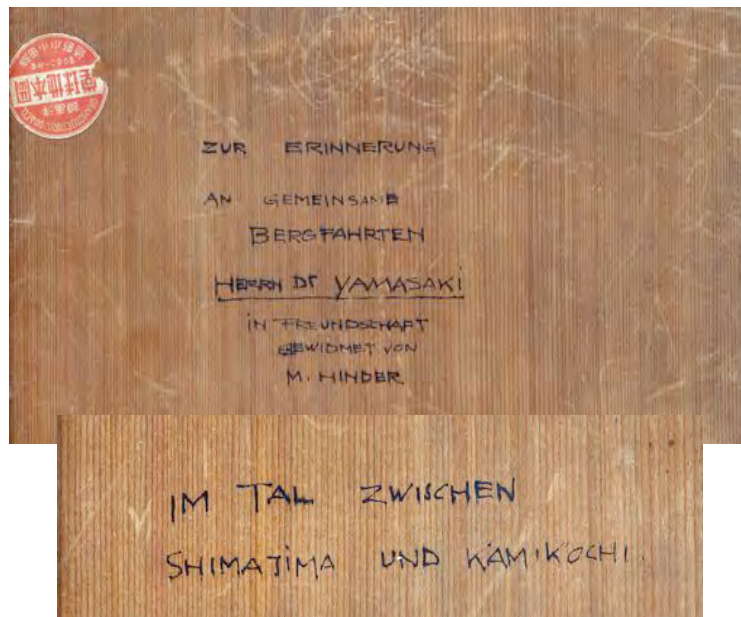 ZUR ERINNERUNG
AN GEMEINSAME
BERGFAHRTEN
HERRN Dr YAMASAKI
IN FREUNDSCHAFT
GEWIDMET VON
M. HINDER
IM TAL ZWISCHEN
SHIMAJIMA UND KAMIKOCHI.